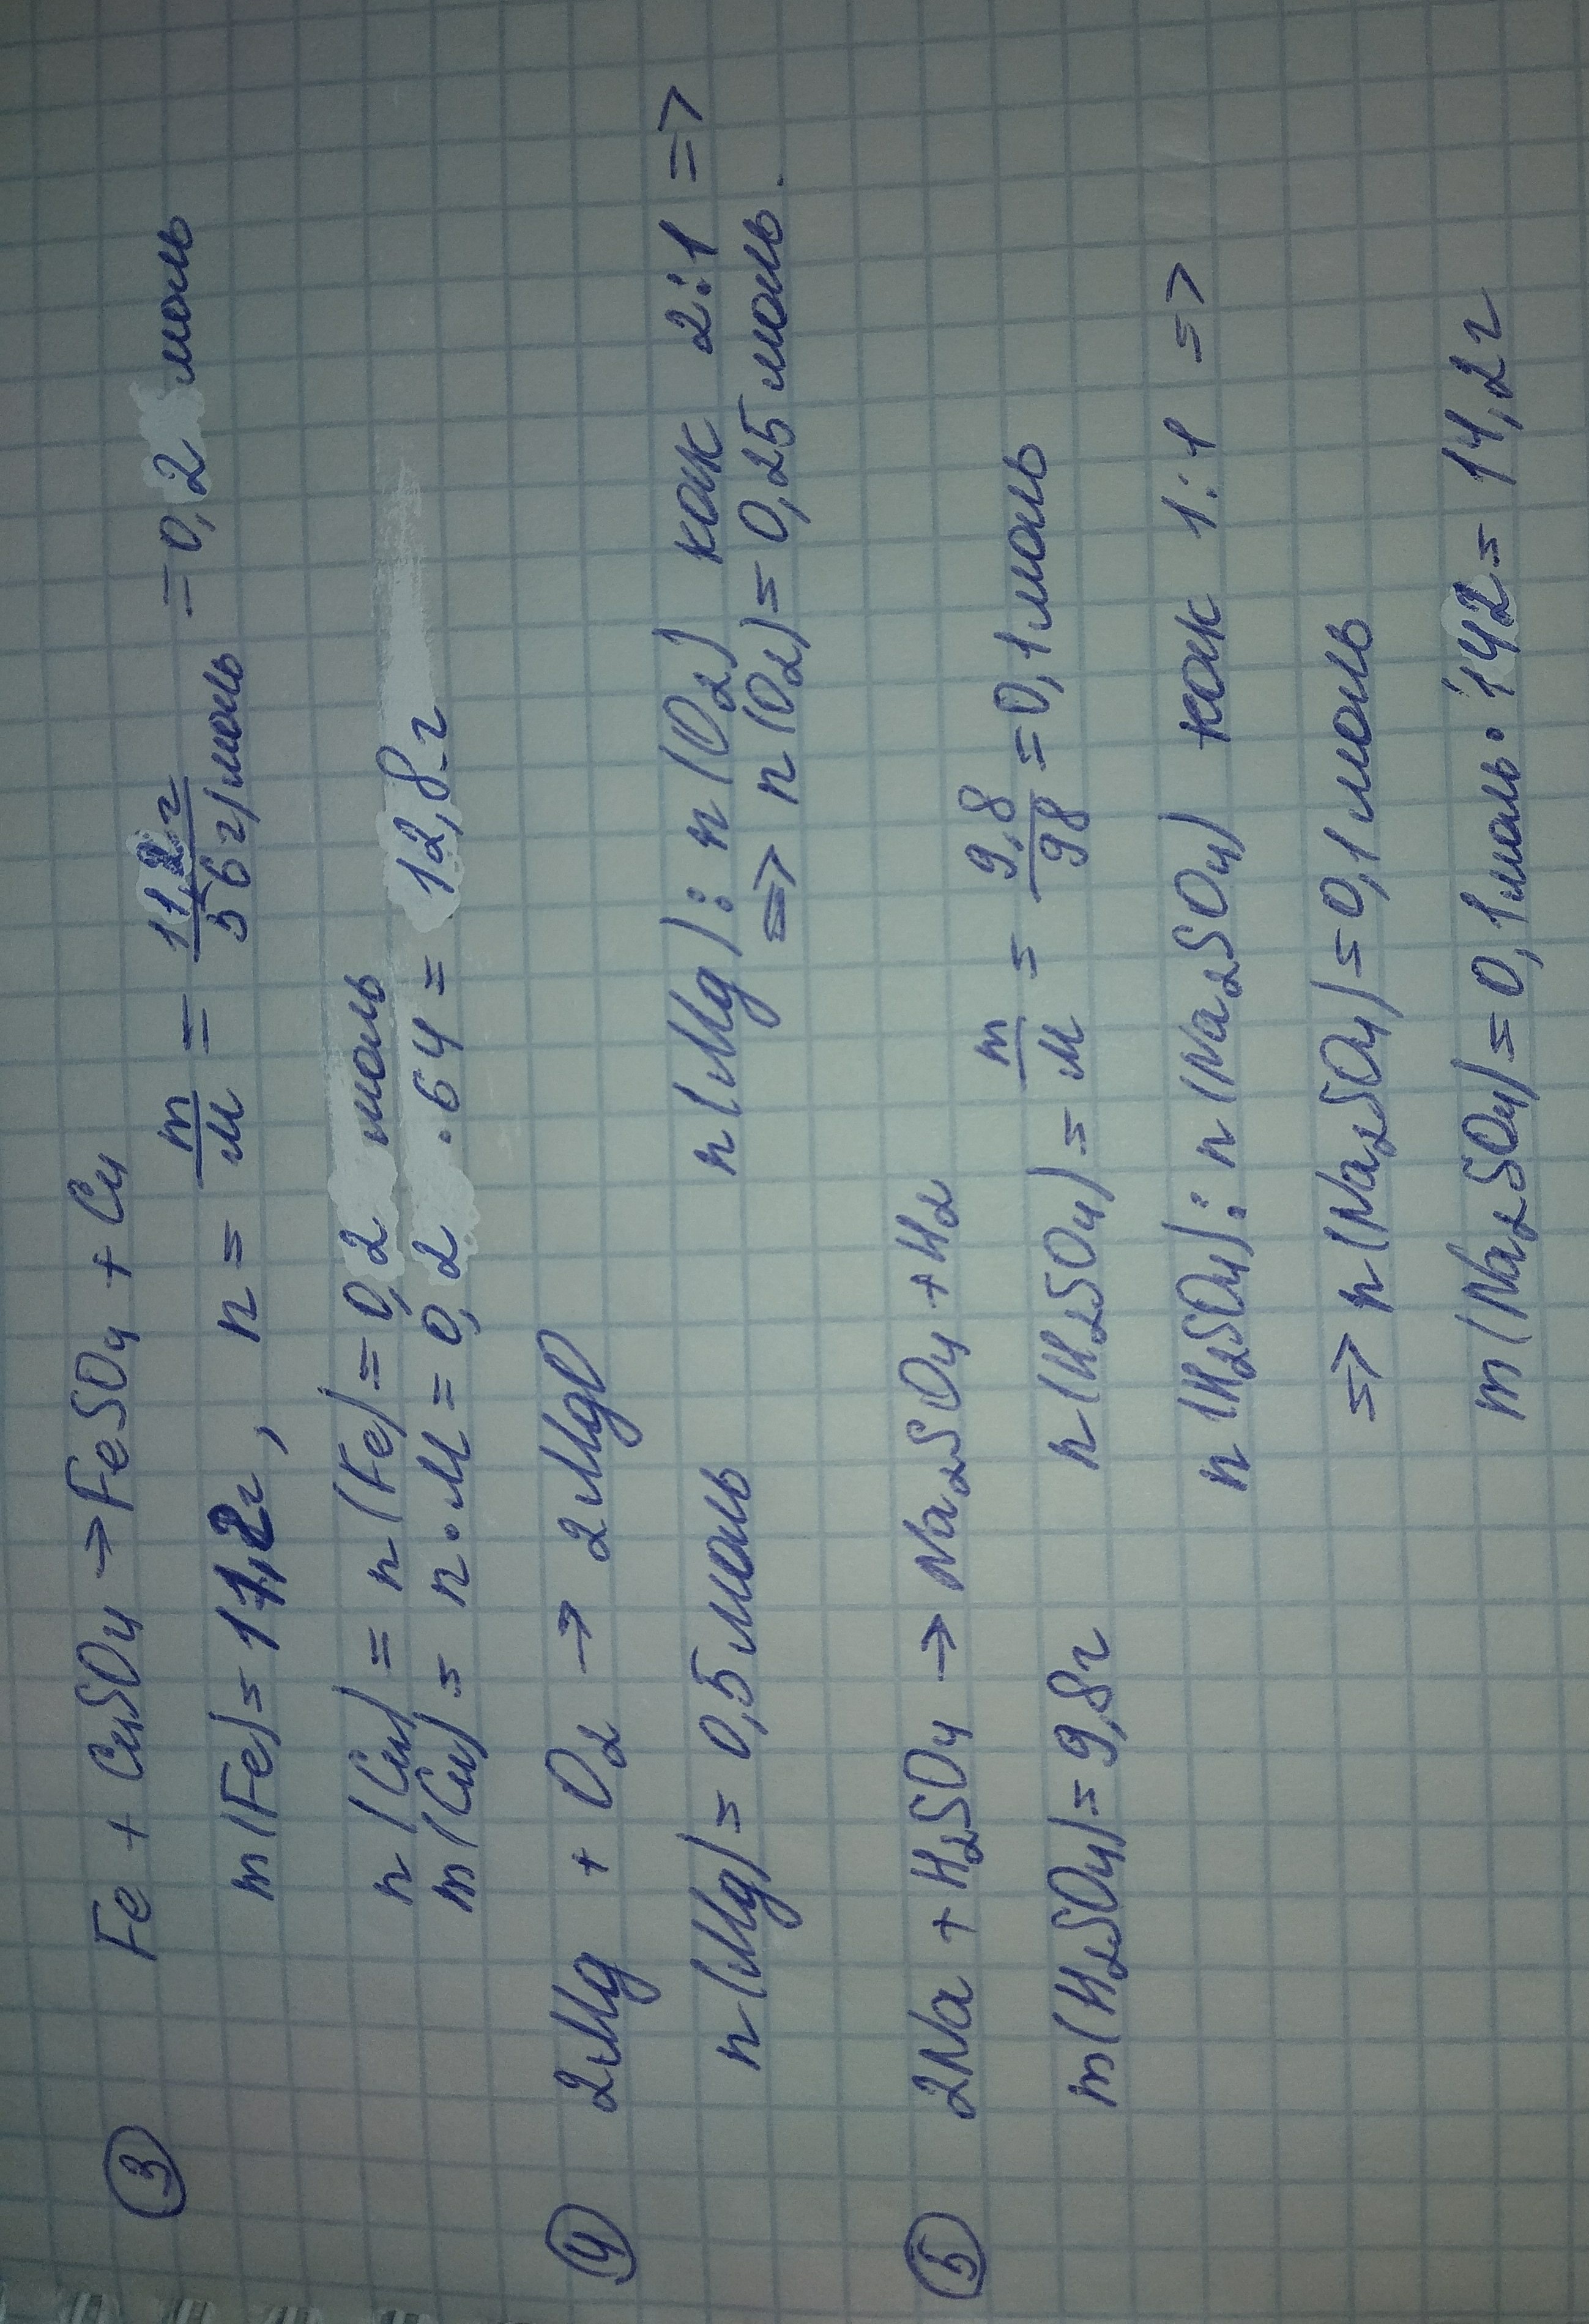 ③ Fe + CuSO₄ → FeSO₄ + Cu
m(Fe) = 11,2г, n = m/M = 11,2г/56г/моль = 0,2 моль
n(Cu) = n(Fe) = 0,2 моль
m(Cu) = n·M = 0,2 ·64 = 12,8г
④ 2Mg + O₂ → 2MgO
n(Mg) = 0,5моль n(Mg) : n(O₂) как 2:1 =>
=> n(O₂) = 0,25моль.
⑤ 2Na + H₂SO₄ → Na₂SO₄ + H₂
m(H₂SO₄) = 9,8г n(H₂SO₄) = m/M = 9,8/98 = 0,1моль
n(H₂SO₄) : n(Na₂SO₄) как 1:1 =>
=> n(Na₂SO₄) = 0,1моль
m(Na₂SO₄) = 0,1моль·142 = 14,2г